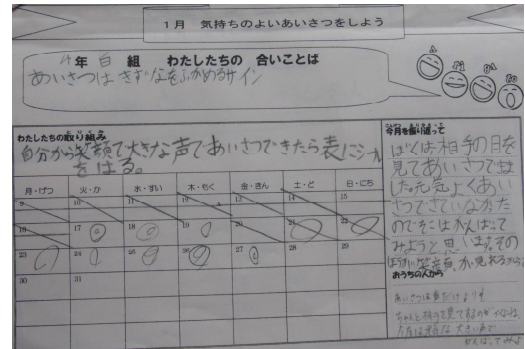 1月 気持ちのよいあいさつをしよう
4年 白 組 わたしたちの 合いことは
あいさつは きずなをふかめるサイン
わたしたちの取り組み
自分から笑顔で大きな声であいさつできたら表にシール
をはる。
月・げつ 火・か 水・すい 木・もく 金・きん 土・ど 日・にち
9 10 11 12 13 14 15
16 17 18 19 20 21 22
23 24 25 26 27 28 29
30 31
今月を振り返って
ぼくは相手の目を
見てあいさつできま
した。元気よくあい
さつできていなかった
のでそこはがんばって
みようと思います。その
ほうが笑顔が見れるから
おうちの人から
あいさつは声だけよりも
ちゃんと相手を見てするのがいいね。
大きい声で
がんばってみよう